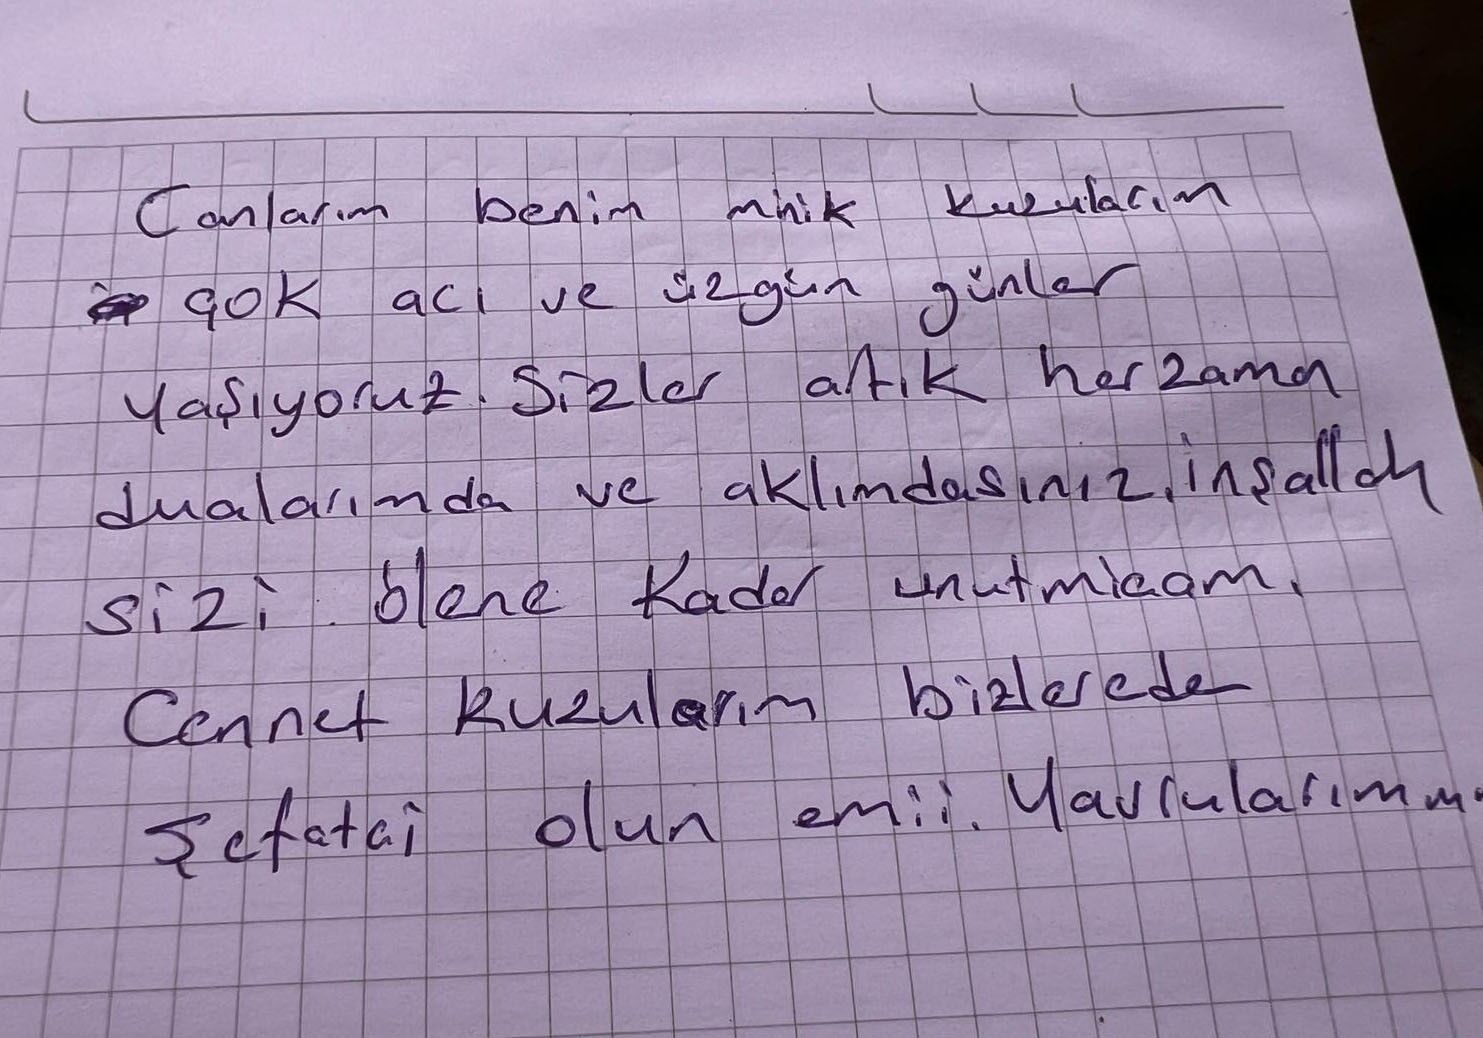 Canlarım benim minik kuzularım
çok acı ve üzgün günler
yaşıyoruz. Sizler artık her zaman
dualarımda ve aklımdasınız. inşallah
sizi ölene kadar unutmıcam.
Cennet kuzularım bizlerede
şefatci olun emii. Yavrularımm.